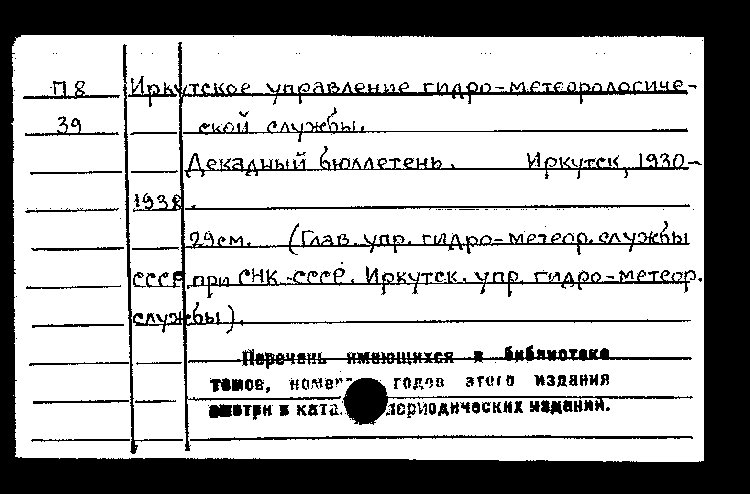 П8 Иркутское управление гидро-метеорологиче-
39 ской службы.
Декадный бюллетень. Иркутск, 1930-
1938.
29см. (Глав. упр. гидро-метеор. службы
СССР при СНК СССР. Иркутск. упр. гидро-метеор.
службы).
Перечень имеющихся в библиотеке
томов, номеров годов этого издания
смотри в ката периодических изданий.